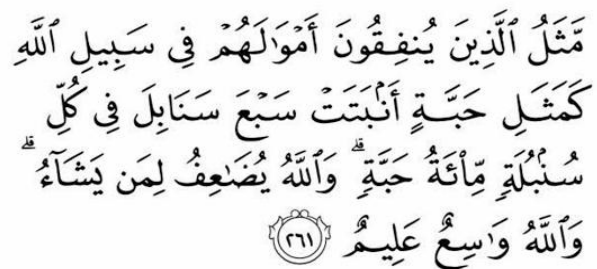 مَّثَلُ ٱلَّذِينَ يُنفِقُونَ أَمۡوَٰلَهُمۡ فِي سَبِيلِ ٱللَّهِ
كَمَثَلِ حَبَّةٍ أَنۢبَتَتۡ سَبۡعَ سَنَابِلَ فِي كُلِّ
سُنۢبُلَةٖ مِّاْئَةُ حَبَّةٖۗ وَٱللَّهُ يُضَٰعِفُ لِمَن يَشَآءُۗ
وَٱللَّهُ وَٰسِعٌ عَلِيمٌ ٢٦١